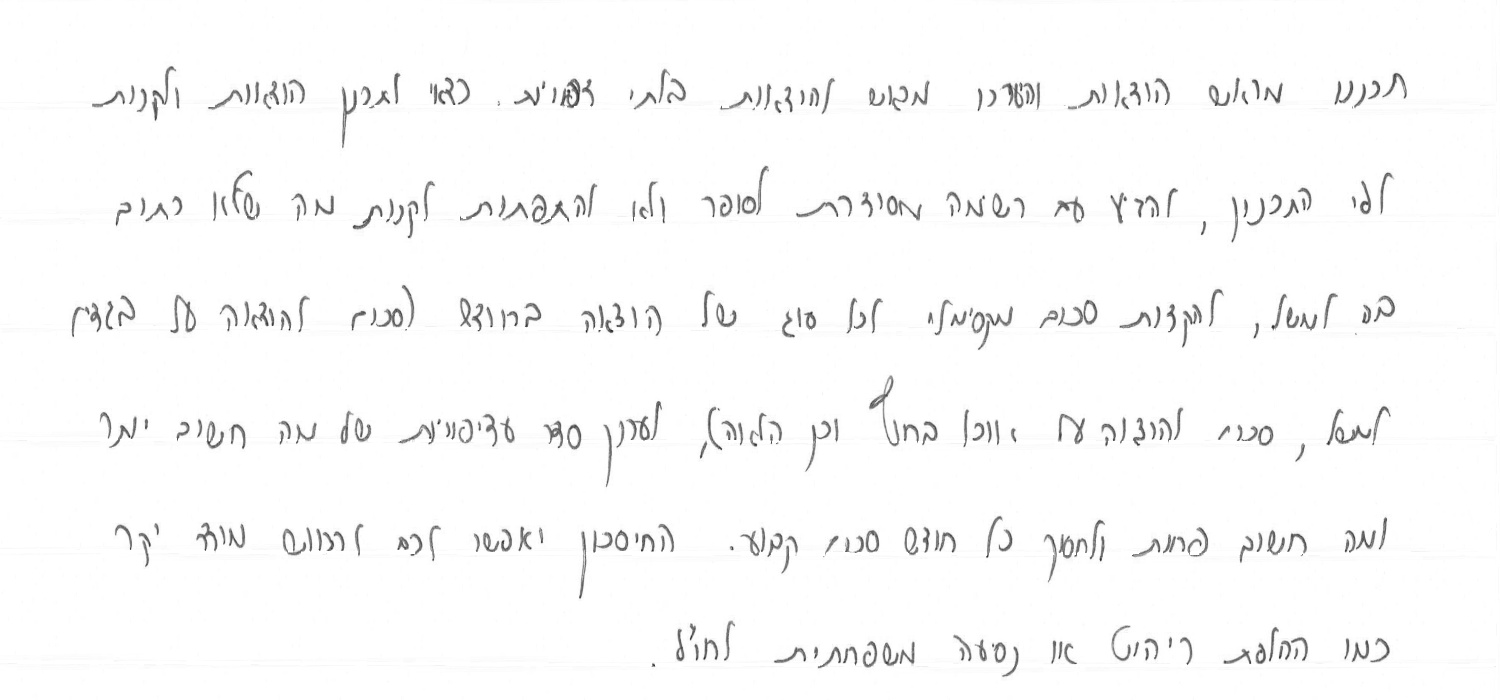 תכננו מראש הוצאות והערכו מראש להוצאות בלתי צפויות. כדאי לתכנן הוצאות ולקנות
לפי התכנון, להגיע עם רשימה מסודרת לסופר ולא להתפתות לקנות מה שלא כתוב
בה למשל, להקצות סכום מקסימלי לכל סוג של הוצאה בחודש (סכום להוצאה על בגדים
למשל, סכום להוצאה על אוכל בחוץ וכן הלאה), לערוך סדר עדיפויות של מה חשוב יותר
ומה חשוב פחות ולחסוך כל חודש סכום קבוע. החיסכון יאפשר לכם לרכוש מוצר יקר
כמו החלפת ריהוט או נסיעה משפחתית לחו"ל.